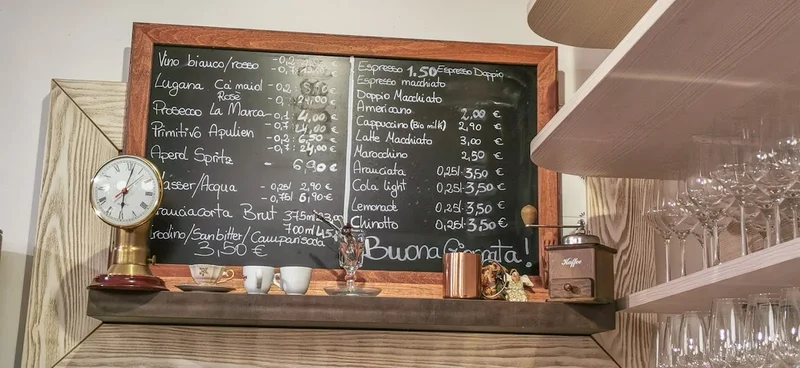 Vino bianco/rosso -0,2
-0,7 12,00
Lugana Ca'maiol -0,2
Rosé -0,7 24,00
Prosecco La Marca -0,1 4,00
-0,7 24,00
Primitivo Apulien -0,2 6,50
-0,7 24,00
Aperol Spritz - 6,90 €
Wasser/Acqua -0,25l 2,90 €
-0,75l 6,90 €
Franciacorta Brut 375ml
700ml
Crodino/Sanbitter/Camparisoda
3,50 €
Espresso 1.50 Espresso Doppio
Espresso macchiato
Doppio Macchiato
Americano 2,00 €
Cappuccino (Bio milk) 2,90 €
Latte Macchiato 3,00 €
Marocchino 2,50 €
Aranciata 0,25l 3,50 €
Cola light 0,25l 3,50 €
Lemonade 0,25l 3,50 €
Chinotto 0,25l 3,50 €
Buona Giornata!
Kaffee